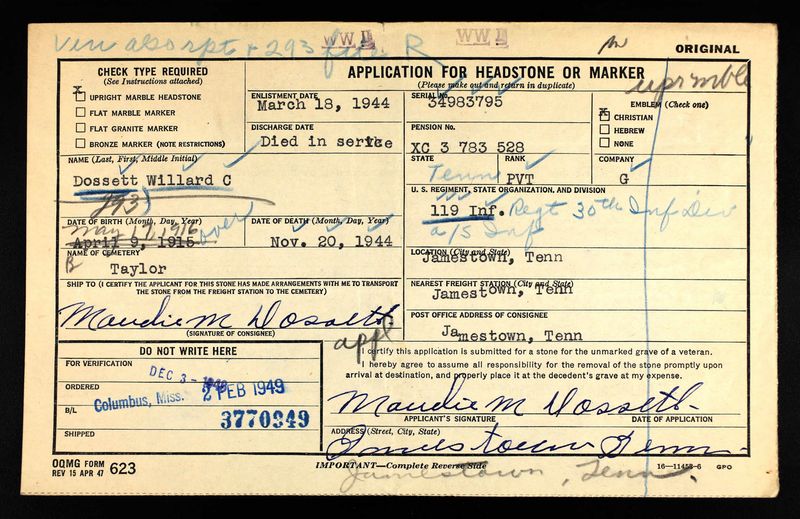 Ven also rpt + 293 R
WW II
WW II
ORIGINAL
CHECK TYPE REQUIRED
(See Instructions attached)
x UPRIGHT MARBLE HEADSTONE
FLAT MARBLE MARKER
FLAT GRANITE MARKER
BRONZE MARKER (NOTE RESTRICTIONS)
APPLICATION FOR HEADSTONE OR MARKER
(Please make out and return in duplicate)
uprmble
ENLISTMENT DATE
March 18, 1944
SERIAL No.
34983795
EMBLEM (Check one)
x CHRISTIAN
HEBREW
NONE
DISCHARGE DATE
Died in service
PENSION No.
XC 3 783 528
NAME (Last, First, Middle Initial)
Dossett Willard C
293
STATE
Tenn
RANK
PVT
COMPANY
G
U. S. REGIMENT, STATE ORGANIZATION, AND DIVISION
119 Inf. Regt 30th Inf Div
a/s Inf
DATE OF BIRTH (Month, Day, Year)
May 17, 1916 over
April 9, 1915
DATE OF DEATH (Month, Day, Year)
Nov. 20, 1944
NAME OF CEMETERY
Taylor
LOCATION (City and State)
Jamestown, Tenn
SHIP TO (I CERTIFY THE APPLICANT FOR THIS STONE HAS MADE ARRANGEMENTS WITH ME TO TRANSPORT
THE STONE FROM THE FREIGHT STATION TO THE CEMETERY)
NEAREST FREIGHT STATION (City and State)
Jamestown, Tenn
Maudie M Dossett
(SIGNATURE OF CONSIGNEE)
appl
POST OFFICE ADDRESS OF CONSIGNEE
Jamestown, Tenn
DO NOT WRITE HERE
FOR VERIFICATION
DEC 3 - 1948
ORDERED
Columbus, Miss. 2 FEB 1949
B/L
3770949
SHIPPED
I certify this application is submitted for a stone for the unmarked grave of a veteran.
I hereby agree to assume all responsibility for the removal of the stone promptly upon
arrival at destination, and properly place it at the decedent's grave at my expense.
Maudie M Dossett
APPLICANT'S SIGNATURE
DATE OF APPLICATION
ADDRESS (Street, City, State)
Jamestown Tenn
OQMG FORM
REV 15 APR 47 623
IMPORTANT—Complete Reverse Side
16—11453-6 GPO
Jamestown, Tenn.